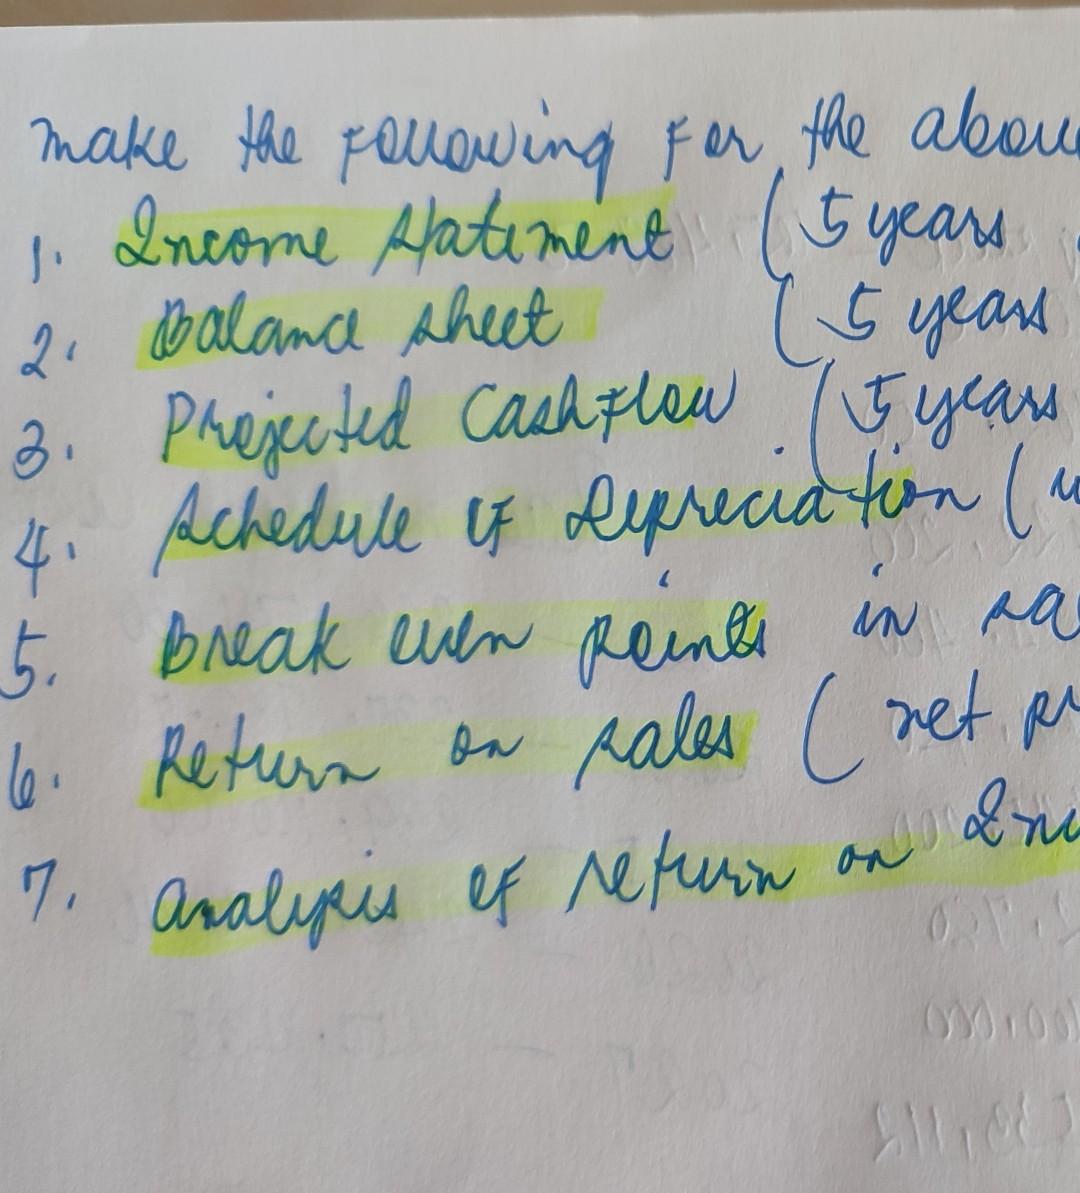 make the following for the above
1. Income statement (5 years
2. Balance sheet (5 years
3. Projected Cashflow (5 years
4. Schedule of Depreciation (
5. Break even points in sa
6. Return on sales ( net pr
7. Analysis of return on In